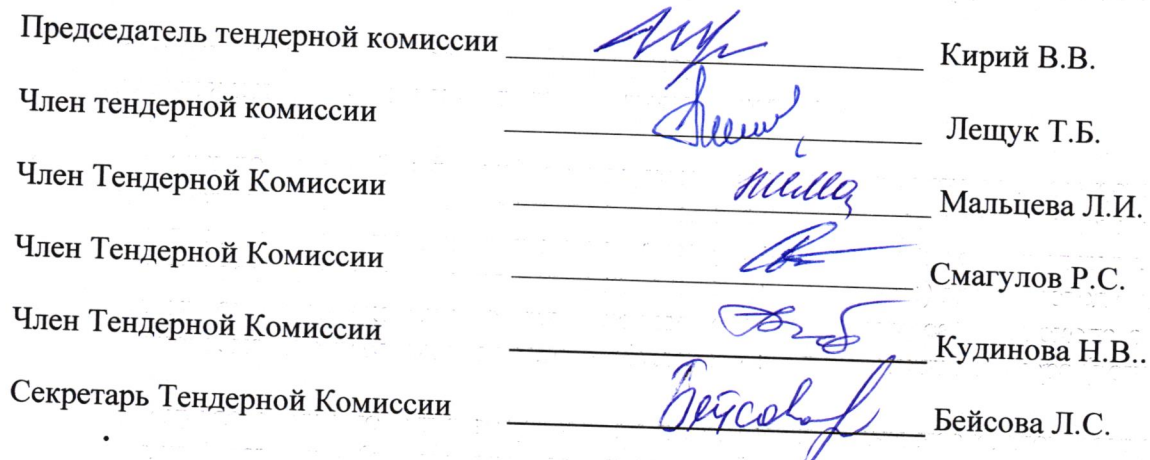 Председатель тендерной комиссии Кирий В.В.
Член тендерной комиссии Лещук Т.Б.
Член Тендерной Комиссии Мальцева Л.И.
Член Тендерной Комиссии Смагулов Р.С.
Член Тендерной Комиссии Кудинова Н.В..
Секретарь Тендерной Комиссии Бейсова Л.С.